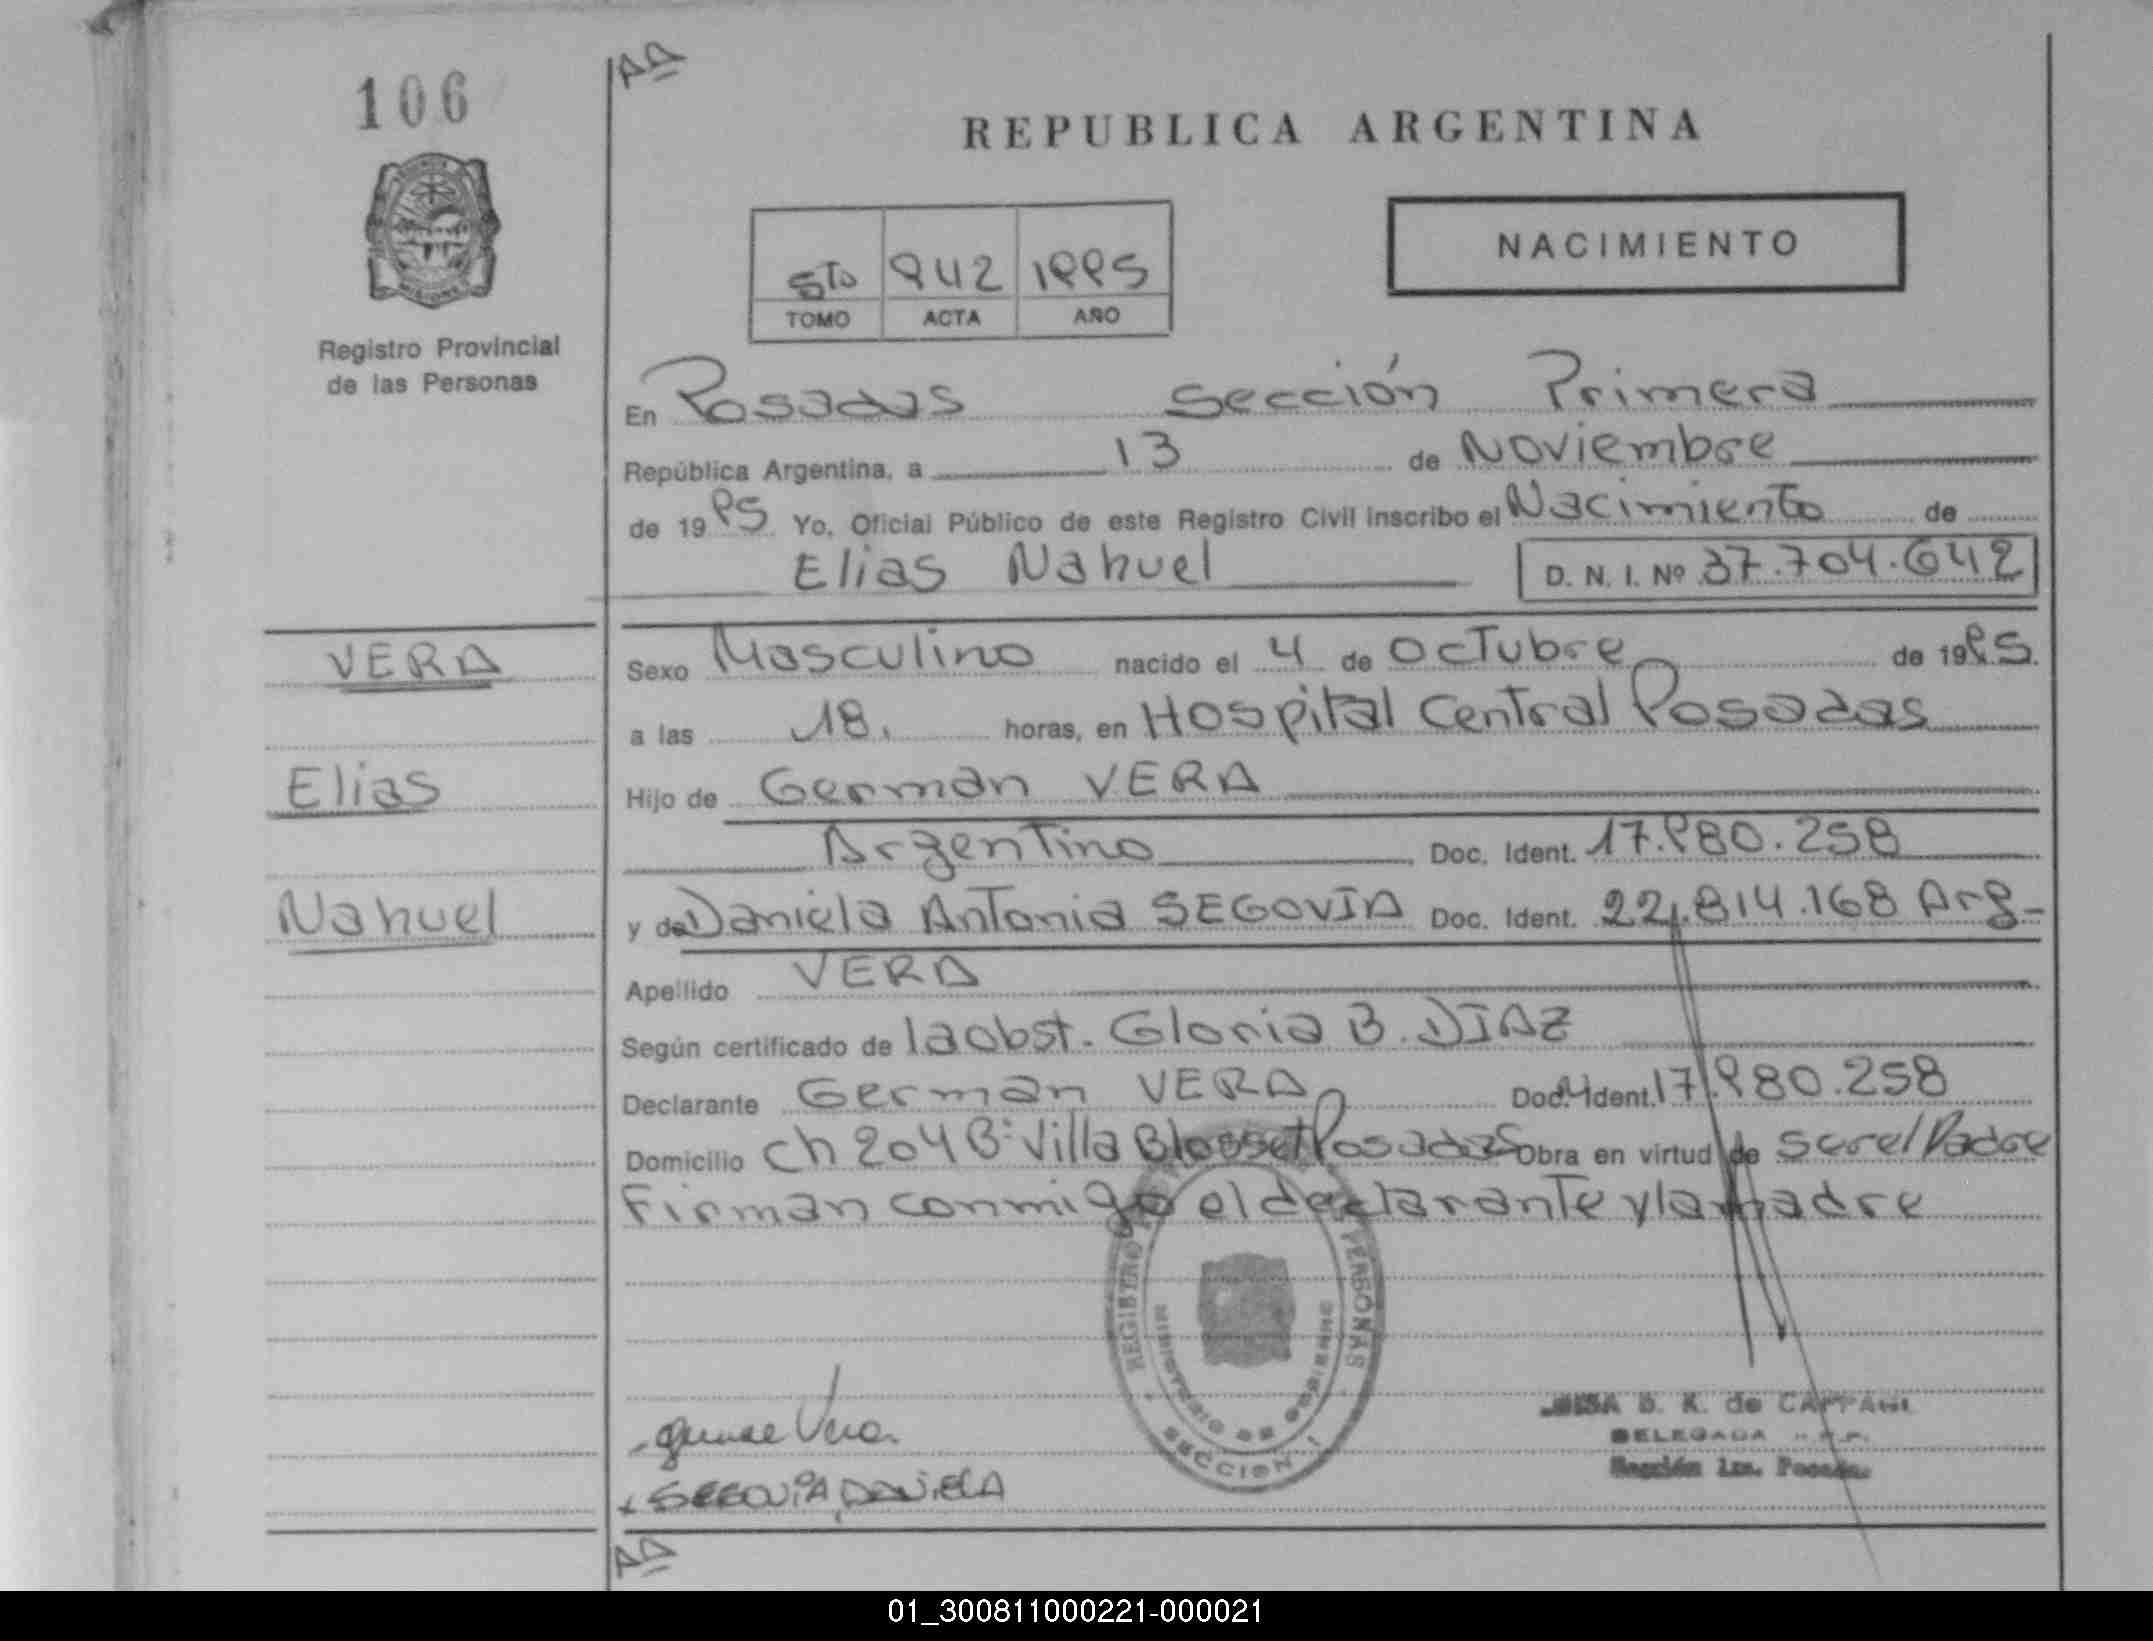 106
AA
REPUBLICA ARGENTINA
NACIMIENTO
5to 942 1995
TOMO ACTA AÑO
Registro Provincial
de las Personas
En Posadas Sección Primera
República Argentina, a 13 de Noviembre
de 1995 Yo, Oficial Público de este Registro Civil inscribo el Nacimiento de
Elias Nahuel D. N. I. Nº 37.704.642
VERA
Sexo Masculino nacido el 4 de Octubre de 1995.
a las 18. horas, en Hospital Central Posadas
Elias
Hijo de German VERA
Argentino Doc. Ident. 17.980.258
Nahuel
y de Daniela Antonia SEGOVIA Doc. Ident. 22.814.168 Arg-
Apellido VERA
Según certificado de la obst. Gloria B. DIAZ
Declarante German VERA Doc. Ident. 17.980.258
Domicilio Ch 204 Bº Villa Blosset Posadas Obra en virtud de ser el Padre
Firman conmigo el declarante y la madre
REGISTRO PERSONAS
MINISTERIO DE GOBIERNO
SECCION I
Vera
SEGOVIA DANIELA
D. K. de CAPPANI
DELEGADA
Sección 1ra. Posadas
AA
01_300811000221-000021